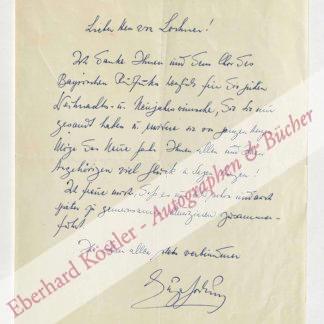 Lieber Herr von Lochner!
Ich danke Ihnen und dem Chor des
Bayrischen Rundfunks herzlichst für die guten
Weihnachts- u. Neujahrswünsche, die Sie mir
gesandt haben u. erwidere sie von ganzem Herzen.
Möge das Neue Jahr Ihnen allen und
Angehörigen viel Glück u. Segen bringen!
Ich freue mich, daß es uns
später zu gemeinsamem Musizieren zusammen-
führt.
Ihnen allen stets verbunden
Eugen Jochum
Eberhard Köstler - Autographen & Bücher